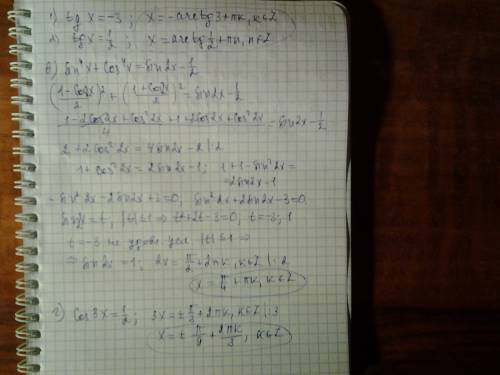 1) tg x = -3; x = -arctg 3 + πk, k∈Z
2) tg x = 1/2; x = arctg 1/2 + πn, n∈Z
в) sin⁴x + cos⁴x = sin2x - 1/2
((1-cos2x)/2)² + ((1+cos2x)/2)² = sin2x - 1/2
(1-2cos2x+cos²2x+1+2cos2x+cos²2x)/4 = sin2x - 1/2
2+2cos²2x = 4sin2x-2 |:2
1+cos²2x = 2sin2x-1; 1+1-sin²2x =
= 2sin2x-1
-sin²2x-2sin2x+3=0; sin²2x+2sin2x-3=0;
sin2x=t, |t|≤1 ⇒ t²+2t-3=0, t=-3; 1
t=-3 не удовл. усл |t|≤1 ⇒
⇒ sin2x=1; 2x = π/2+2πk, k∈Z |:2
x = π/4 + πk, k∈Z
г) cos3x = 1/2; 3x = ± π/3 + 2πk, k∈Z |:3
x = ± π/9 + 2πk/3, k∈Z